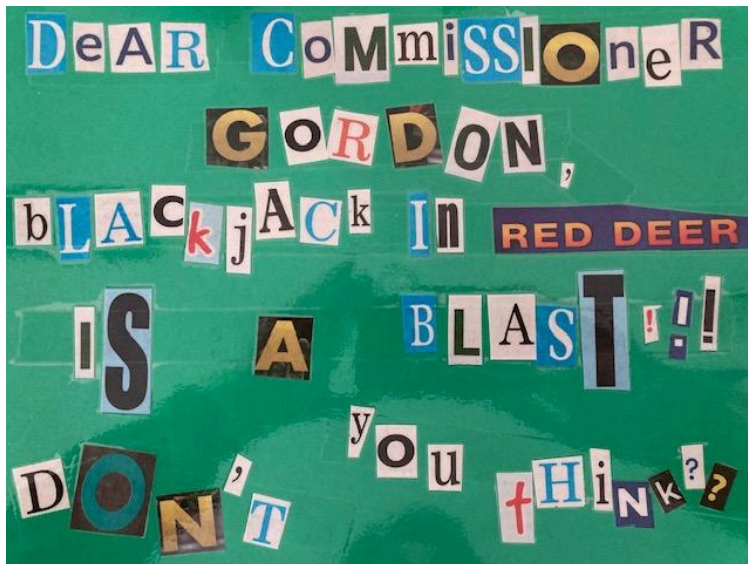 DeAR CoMmiSSIONeR
GORDON,
bLACkjACk In RED DEER
IS A BLAST!!!
DON'T you tHiNK??